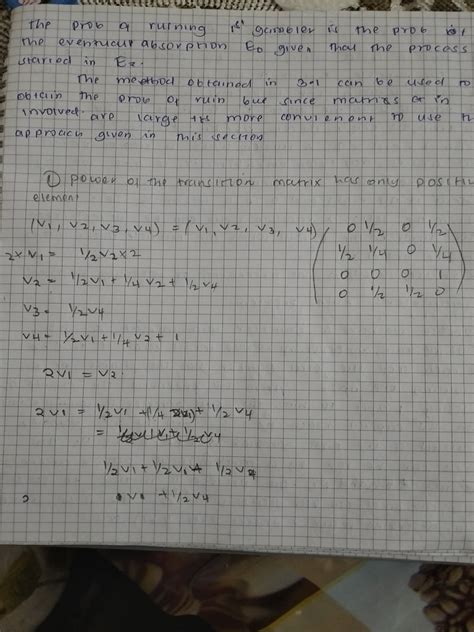 The prob of ruining 1st gambler is the prob of
the eventual absorption E0 given that the process
started in Ex.
The method obtained in 3.1 can be used to
obtain the prob of ruin but since matrices
involved are large its more convienient to use
approach given in this section
① power of the transition matrix has only positiv
element
(V1, V2, V3, V4) = (V1, V2, V3, V4) ( 0 1/2 0 1/2
1/2 1/4 0 1/4
0 0 0 1
0 1/2 1/2 0 )
2 x V1 = 1/2 V2 x 2
V2 = 1/2 V1 + 1/4 V2 + 1/2 V4
V3 = 1/2 V4
V4 = 1/2 V1 + 1/4 V2 + 1
2V1 = V2
2V1 = 1/2 V1 + (1/4 2V1) + 1/2 V4
=
1/2 V1 + 1/2 V1 + 1/2 V4
V1 + 1/2 V4